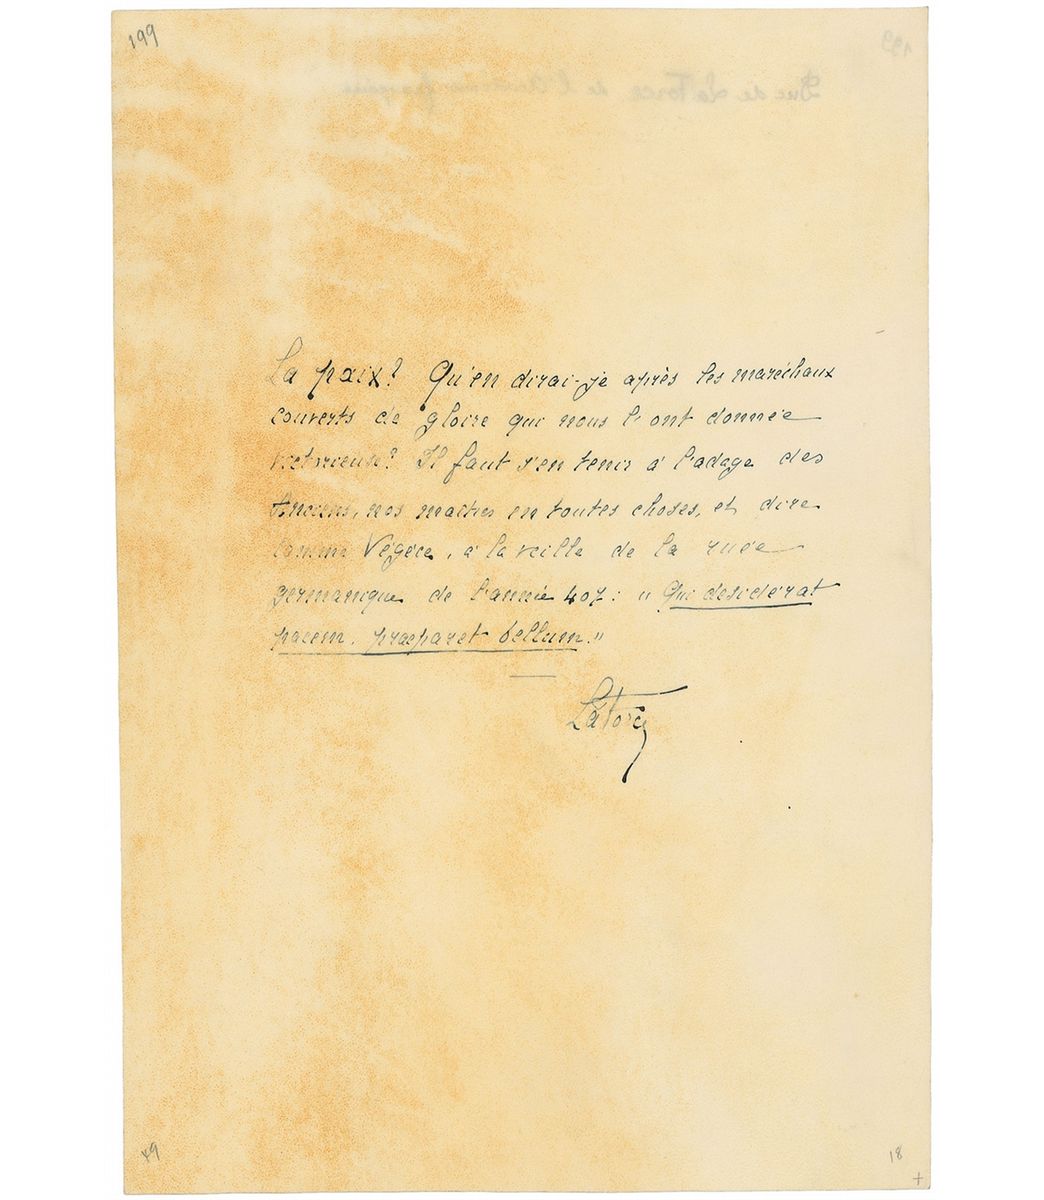 199
199
Duc de La Force de l'Académie française
La paix? Qu'en dirai-je après les maréchaux
couverts de gloire qui nous l'ont donnée
victorieuse? Il faut s'en tenir à l'adage des
Anciens, nos maîtres en toutes choses, et dire
comme Végèce, à la veille de la ruée
germanique de l'année 407: « Qui desiderat
pacem, præparet bellum. »
La Force
49
18
+